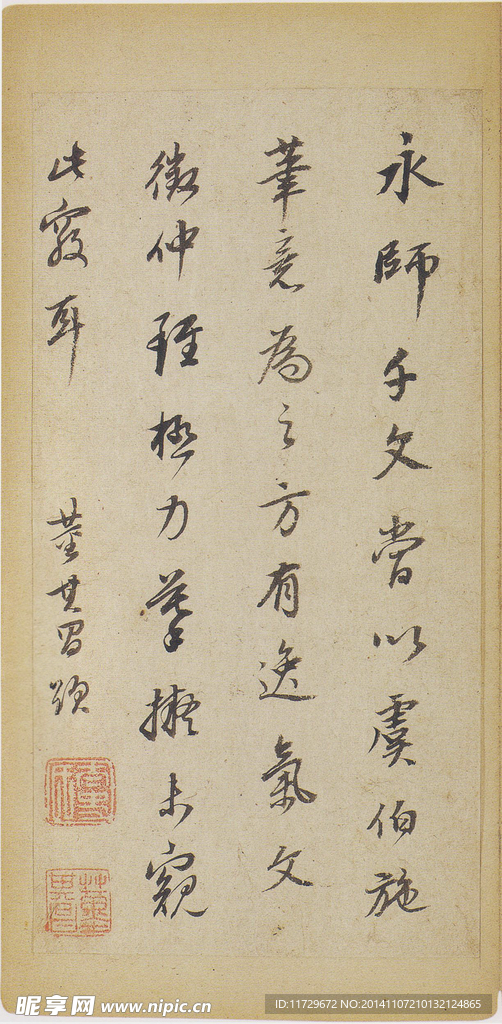 永師千文當以虞伯施
筆意為之方有逸氣文
徵仲雖極力摹擬未窺
此竅耳
董其昌題
昵享网 www.nipic.cn
ID:11729672 NO:20141107210132124865